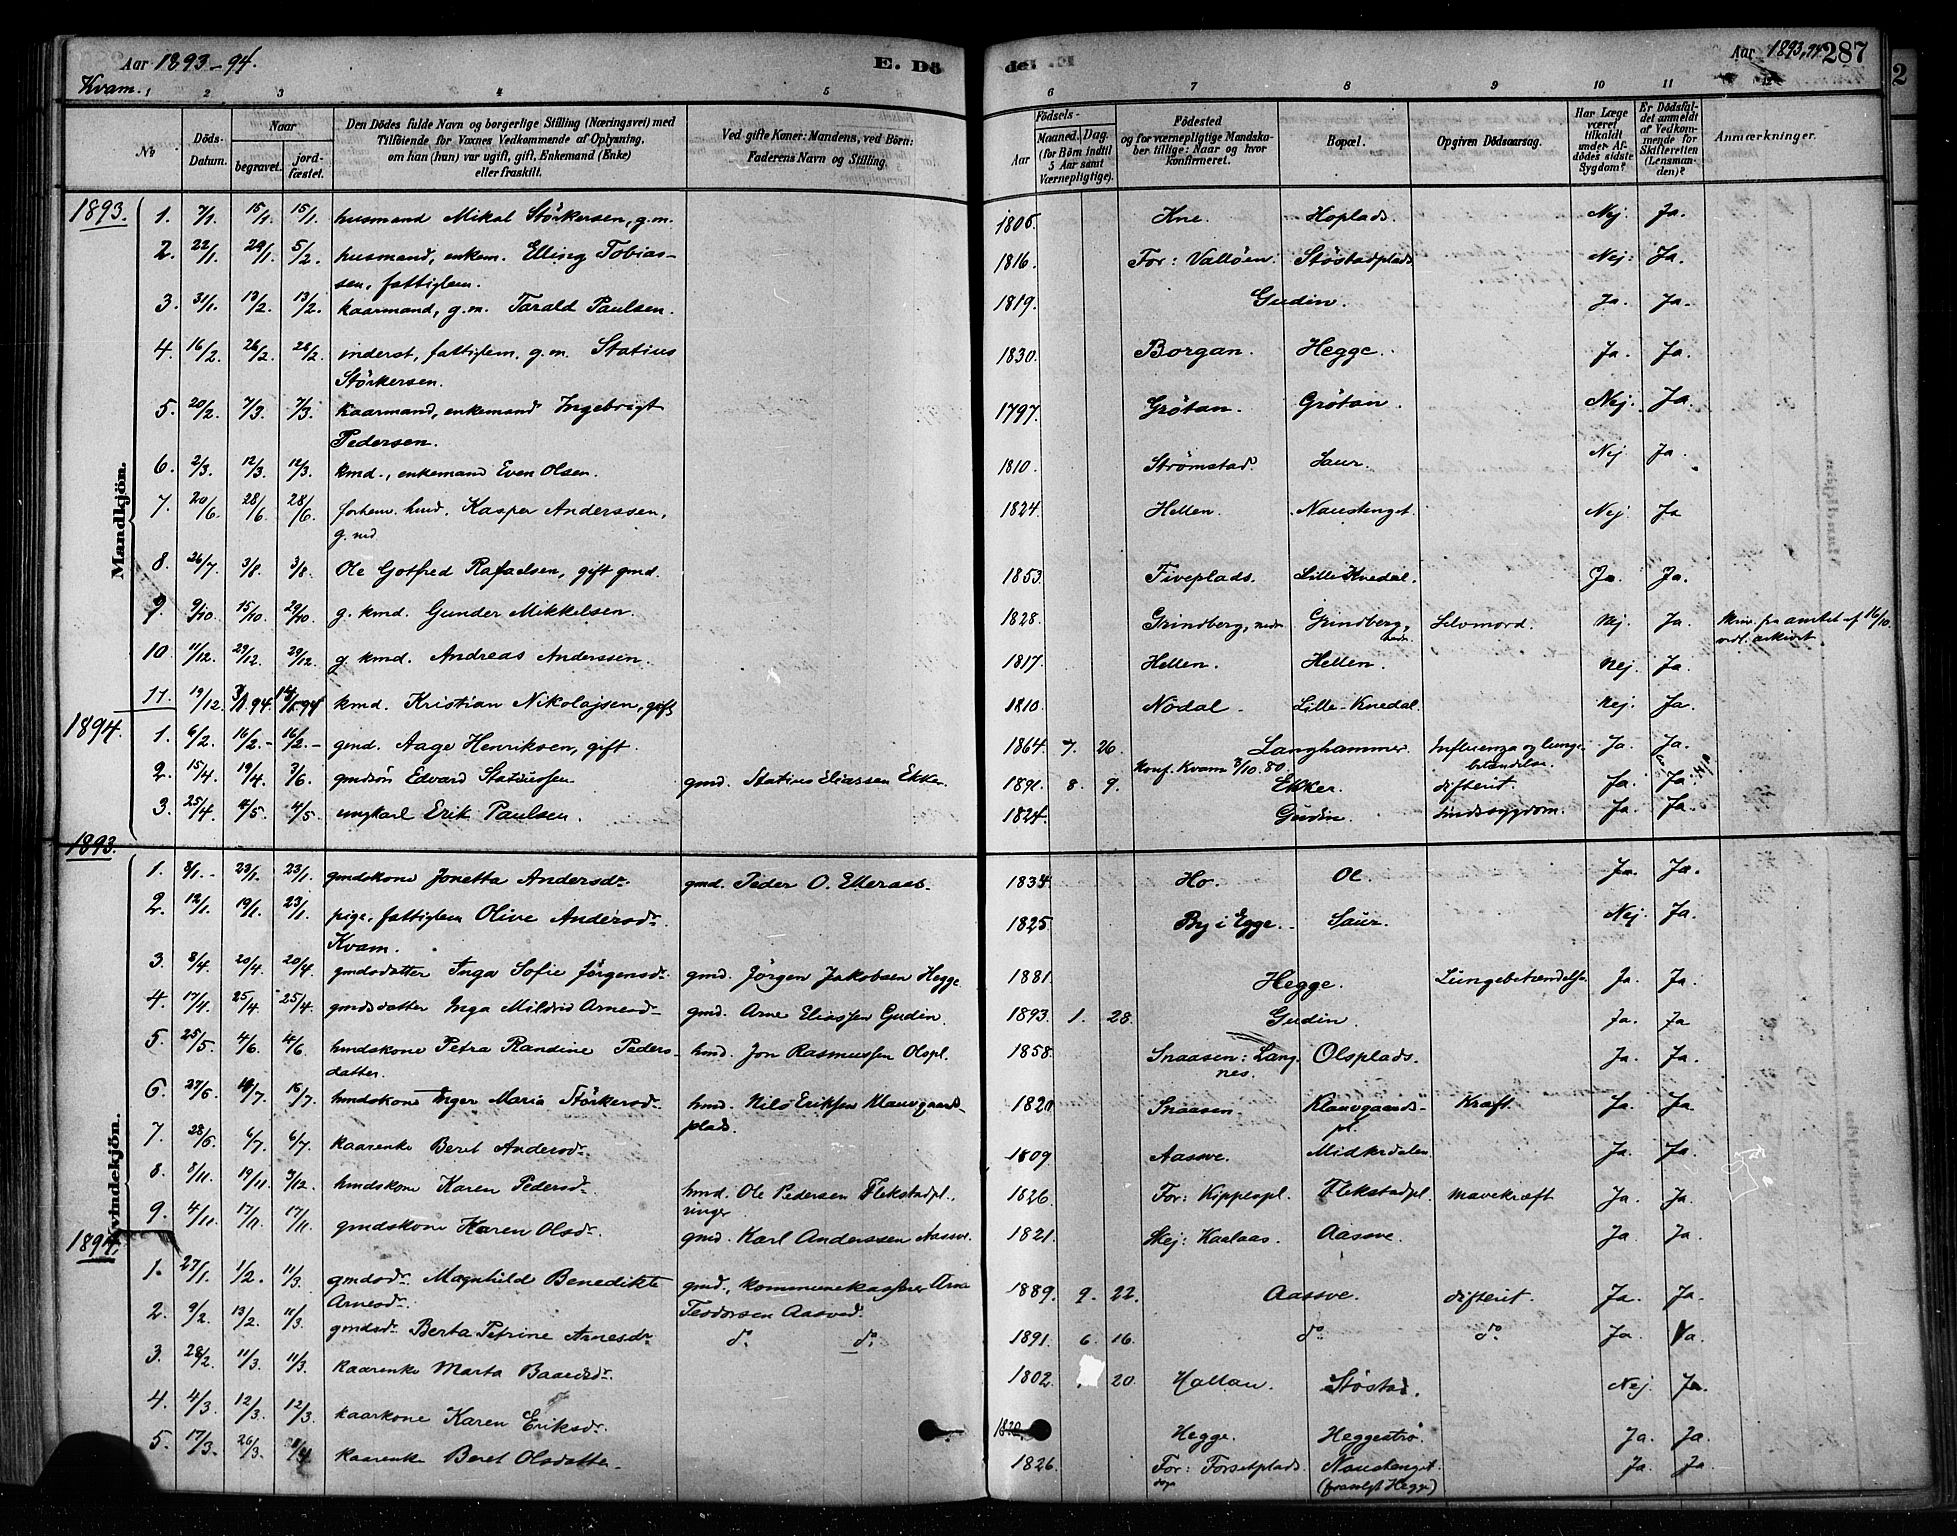 Aar 1893-94. E. Dö
Kvam.
1 2 3 4 5
№ Döds-Datum. Naar begravet. jordfæstet. Den Dödes fulde Navn og borgerlige Stilling (Næringsvei) med Tilföiende for Voxnes Vedkommende af Oplysning, om han (hun) var ugift, gift, Enkemand (Enke) eller fraskilt. Ved gifte Koner: Mandens, ved Börn: Faderens Navn og Stilling.
del Aar 1893, 94. 287
6 7 8 9 10 11 12
Födsels- Aar Maaned. Dag. (for Börn indtil 5 Aar samt Værnepligtige). Födested og for værnepligtige Mandskaber tillige: Naar og hvor Konfirmeret. Bopæl. Opgiven Dödsaarsag. Har Læge været tilkaldt under Afdödes sidste Sygdom? Er Dödsfaldet anmeldt af Vedkommende for Skifteretten (Lensmanden)? Anmærkninger.
Mandkjön.
1893. 1. 7/1. 15/1. 15/1. husmand Mikal Störkersen, g.m. 1806. Kne. Hoplads. Nej. Ja.
2. 22/1. 29/1. 5/2. husmand, enkem. Elling Tobias- 1816. For: Valløen. Støstadplads. Nej. Ja.
sen, fattiglem.
3. 31/1. 13/2. 13/2. kaarmand, g.m. Tarald Paulsen. 1819. Gudin. Ja. Ja.
4. 16/2. 26/2. 26/2. inderst, fattiglem, g.m. Statius 1830. Borgan. Hegge. Ja. Ja.
Störkersen.
5. 20/2. 7/3. 7/3. kaarmand, enkemand Ingebrigt 1797. Grötan. Grötan. Nej. Ja.
Pedersen.
6. 2/3. 12/3. 12/3. kmd., enkemand Even Olsen. 1810. Strømstad Saur. Nej. Ja.
7. 20/6. 28/6. 28/6. forhenv. hmd. Kasper Anderssen, 1824. Hellen. Naustenget. Nej. Ja
8. 26/7. 3/8. 3/8. Ole Gotfred Rafaelsen, gift gmd. 1853. Tiveplads. Lille Kvedal. Ja. Ja.
9. 9/10. 15/10. 29/10. g. kmd. Gunder Mikkelsen. 1828. Grindberg, nedr. Grindberg, nedr. Selvmord. Nej. Ja. Skriv. fra amtet af 16/10
vedl. arkivet
10. 11/12. 29/12. 29/12. g. kmd. Andreas Anderssen. 1817. Hellen. Hellen. Nej. Ja.
11. 19/12. 3/1 94. 14/1 94. kmd. Kristian Nikolajsen, gift 1810. Nödal. Lille-Kvedal. Nej. Ja.
1894. 1. 6/2. 16/2. 16/2. gmd. Aage Henriksen, gift. 1864. 7. 26. Langhammer. Influenza og lunge- Ja. Ja.
Konf. Kvam 3/10. 80. betændelse.
2. 15/4. 19/4. 3/6. gmdsön Edvard Statiussen gmd. Statius Eliassen Ekker 1891. 8. 9. Ekker. difterit. Ja. Ja.
3. 25/4. 4/5. 4/5. ungkarl Erik Paulsen. 1824. Gudin. sindssygdom. Ja. Ja.
Kvindekjön.
1893. 1. 8/1. 23/1. 23/1. gmdskone Jonetta Andersdr. gmd. Peder O. Elleraas. 1834. Ho. Ol. Ja. Ja.
2. 12/1. 19/1. 23/1. pige, fattiglem Olive Andersdr. 1825. By i Egge. Saur. Nej. Ja.
Kvam.
3. 8/4. 20/4. 20/4. gmdsdatter Inga Sofie Jörgensdr. gmd. Jörgen Jakobsen Hegge 1881. Hegge. Lungebetændelse. Ja. Ja.
4. 17/4. 25/4. 25/4. gmdsdatter Inga Mildrid Arnesdr. gmd. Arne Eliassen Gudin. 1893. 1. 28. Gudin. Ja. Ja
5. 25/5. 4/6. 4/6. hmdskone Petra Randine Peders- hmd. Jon Rasmussen Olspl. 1858. Snaasen: Lang- Olsplads. Ja. Ja.
datter. nes.
6. 27/6. 16/7. 16/7. hmdskone Inger Maria Störkersdr. hmd. Nils Eriksen Klauvgaards- 1820 Snaasen. Klauvgaards- Kræft. Ja. Ja
plads. pl.
7. 28/6. 6/7. 6/7. kaarenke Beret Andersdr. 1809. Aassve. Midkvdalen. Ja. Ja.
8. 8/11. 19/11. 3/12. hmdskone Karen Pedersdr. hmd. Ole Pedersen Flekstadpl. 1826. For: Kippespl. Flekstadpl. mavekræft. Ja. Ja.
9. 4/11. 17/11. 17/11. gmdskone Karen Olsdr. gmd. Karl Anderssen Aassve. 1821. Skej: Kaalaas. Aassve. Ja. Ja
1894. 1. 27/1. 1/2. 11/3. gmdsdr. Magnhild Benedikte gmd., kommunekasserer Arne 1889. 9. 22. Aassve. difterit. Ja. Ja.
Arnesdr. Teodorsen Aasved.
2. 9/2. 13/2. 11/3. gmdsdr. Berta Petrine Arnesdr. do. do. 1891. 6. 16. do. do. Ja. Ja.
3. 28/2. 11/3. 11/3. kaarenke Marta Baardsdr. 1802. 20. Hallan. Støstad. Nej. Ja.
4. 4/3. 12/3. 12/3. kaarkone Karen Eriksdr. 1820. Hegge. Heggestrø. Ja. Ja.
5. 17/3. 26/3. 1/4. kaarenke Beret Olsdatter. 1826. For: Forsetplads. Naustenget. Ja. Ja.
(fraulgt Hegge)